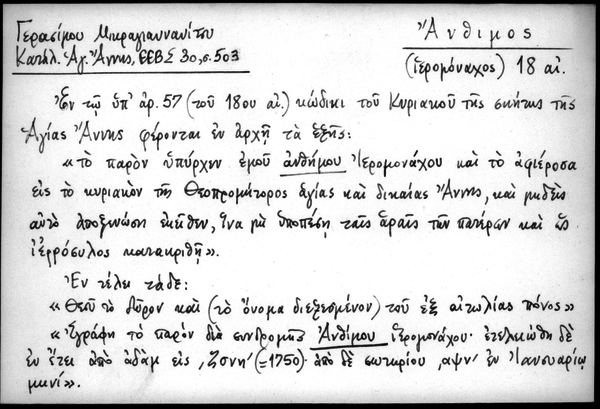 Γερασίμου Μικραγιαννανίτου
Ἄνθιμος
Κατάλ. Ἁγ. Ἄννης, ΕΕΒΣ 30, σ. 503
(ἱερομόναχος) 18 αἰ.
Ἐν τῷ ὑπ' ἀρ. 57 (τοῦ 18ου αἰ.) κώδικι τοῦ Κυριακοῦ τῆς σκήτης τῆς
Ἁγίας Ἄννης φέρονται ἐν ἀρχῇ τὰ ἑξῆς:
«τὸ παρὸν ὑπῦρχεν ἐμοῦ ἀνθήμου Ἱερομονάχου καὶ τὸ ἀφιέροσα
εἰς τὸ κυριακὸν τῆς Θεοπρομήτορος ἁγίας καὶ δικαίας Ἄννης, καὶ μηδεὶς
αὐτὸ ἀποξενώση ἐκεῖθεν, ἵνα μὴ ὑποπέση ταῖς ἀραῖς τῶν πατέρων καὶ ὡς
ἱερρόσυλος κατακριθῆ».
Ἐν τέλει τάδε:
«Θεοῦ τὸ δῶρον καὶ (τὸ ὄνομα διεξεσμένον) τοῦ ἐξ αἰτωλίας πόνος»
«Ἐγράφη τὸ παρὸν διὰ συνδρομῆς Ἀνθίμου ἱερομονάχου· ἐτελειώθη δὲ
ἐν ἔτει ἀπὸ ἀδὰμ εἰς ,ζσνη' (=1750)· ἀπὸ δὲ σωτηρίου ,αψν' ἐν Ἰανουαρίῳ
μηνί».